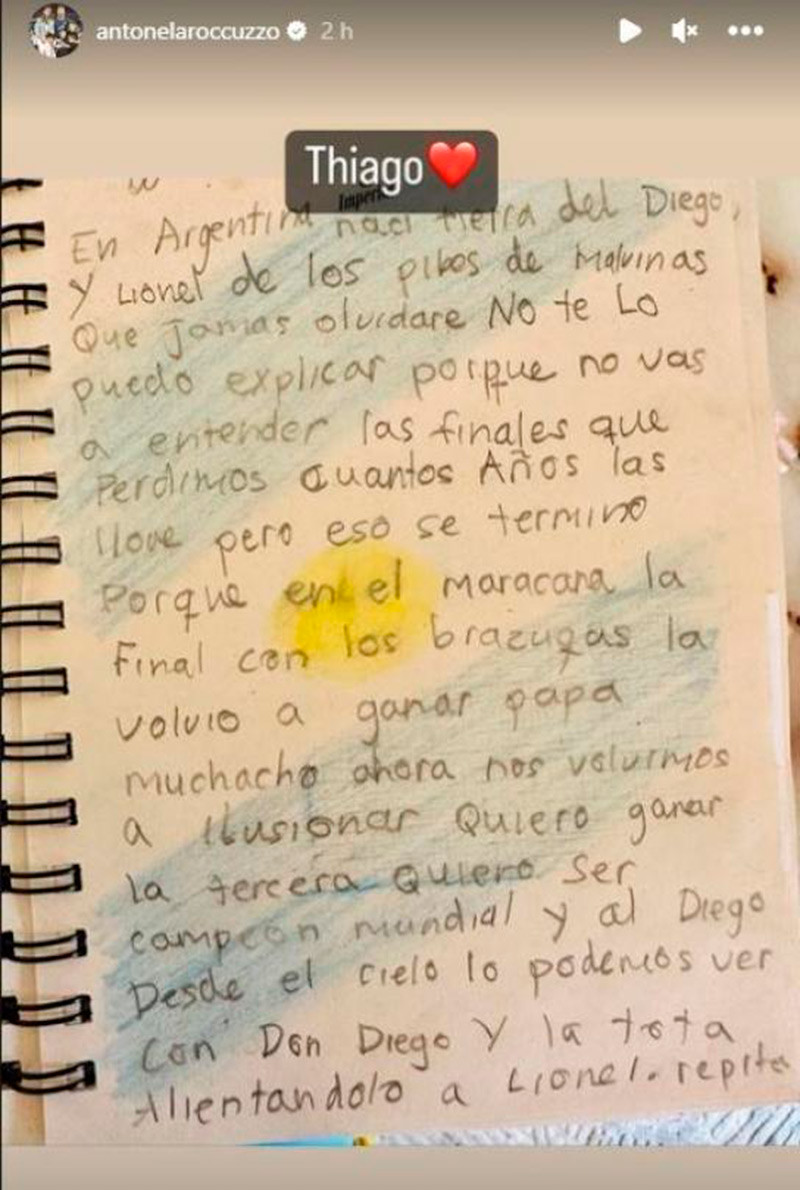 antonelaroccuzzo 2 h
Thiago
En Argentina naci tierra del Diego,
Y Lionel de los pibes de Malvinas
Que Jamas olvidare No te Lo
puedo explicar porque no vas
a entender las finales que
Perdimos Cuantos Años las
llore pero eso se termino
Porque en el maracana la
Final con los brazugas la
volvio a ganar papa
muchacho ahora nos volvimos
a ilusionar Quiero ganar
la tercera Quiero Ser
campeon mundial y al Diego
Desde el cielo lo podemos ver
Con Don Diego Y la tota
Alientandolo a Lionel. repite